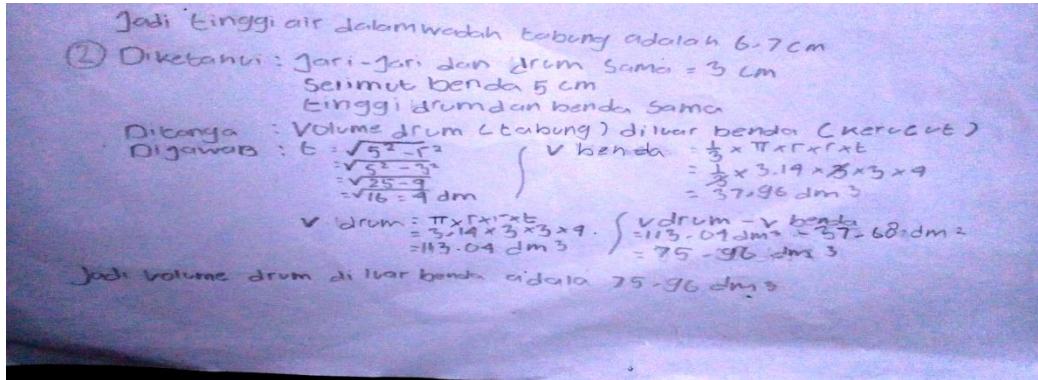 Jadi tinggi air dalam wadah tabung adalah 6.7 cm
② Diketahui : Jari-Jari dan drum Sama = 3 cm
Selimut benda 5 cm
tinggi drum dan benda Sama
Ditanya : Volume drum (tabung) diluar benda (kerucut)
Dijawab : t = √5² - r² V benda = 1/3 × π × r × r × t
= √5² - 3² = 1/3 × 3.14 × 3 × 3 × 4
= √25 - 9 = 37,96 dm 3
= √16 = 4 dm
V drum = π × r × r × t V drum - V benda
= 3.14 × 3 × 3 × 4. = 113.04 dm³ - 37.68 dm 2
= 113.04 dm 3 = 75-96 dm 3
Jadi volume drum di luar benda adala 75-96 dm 3